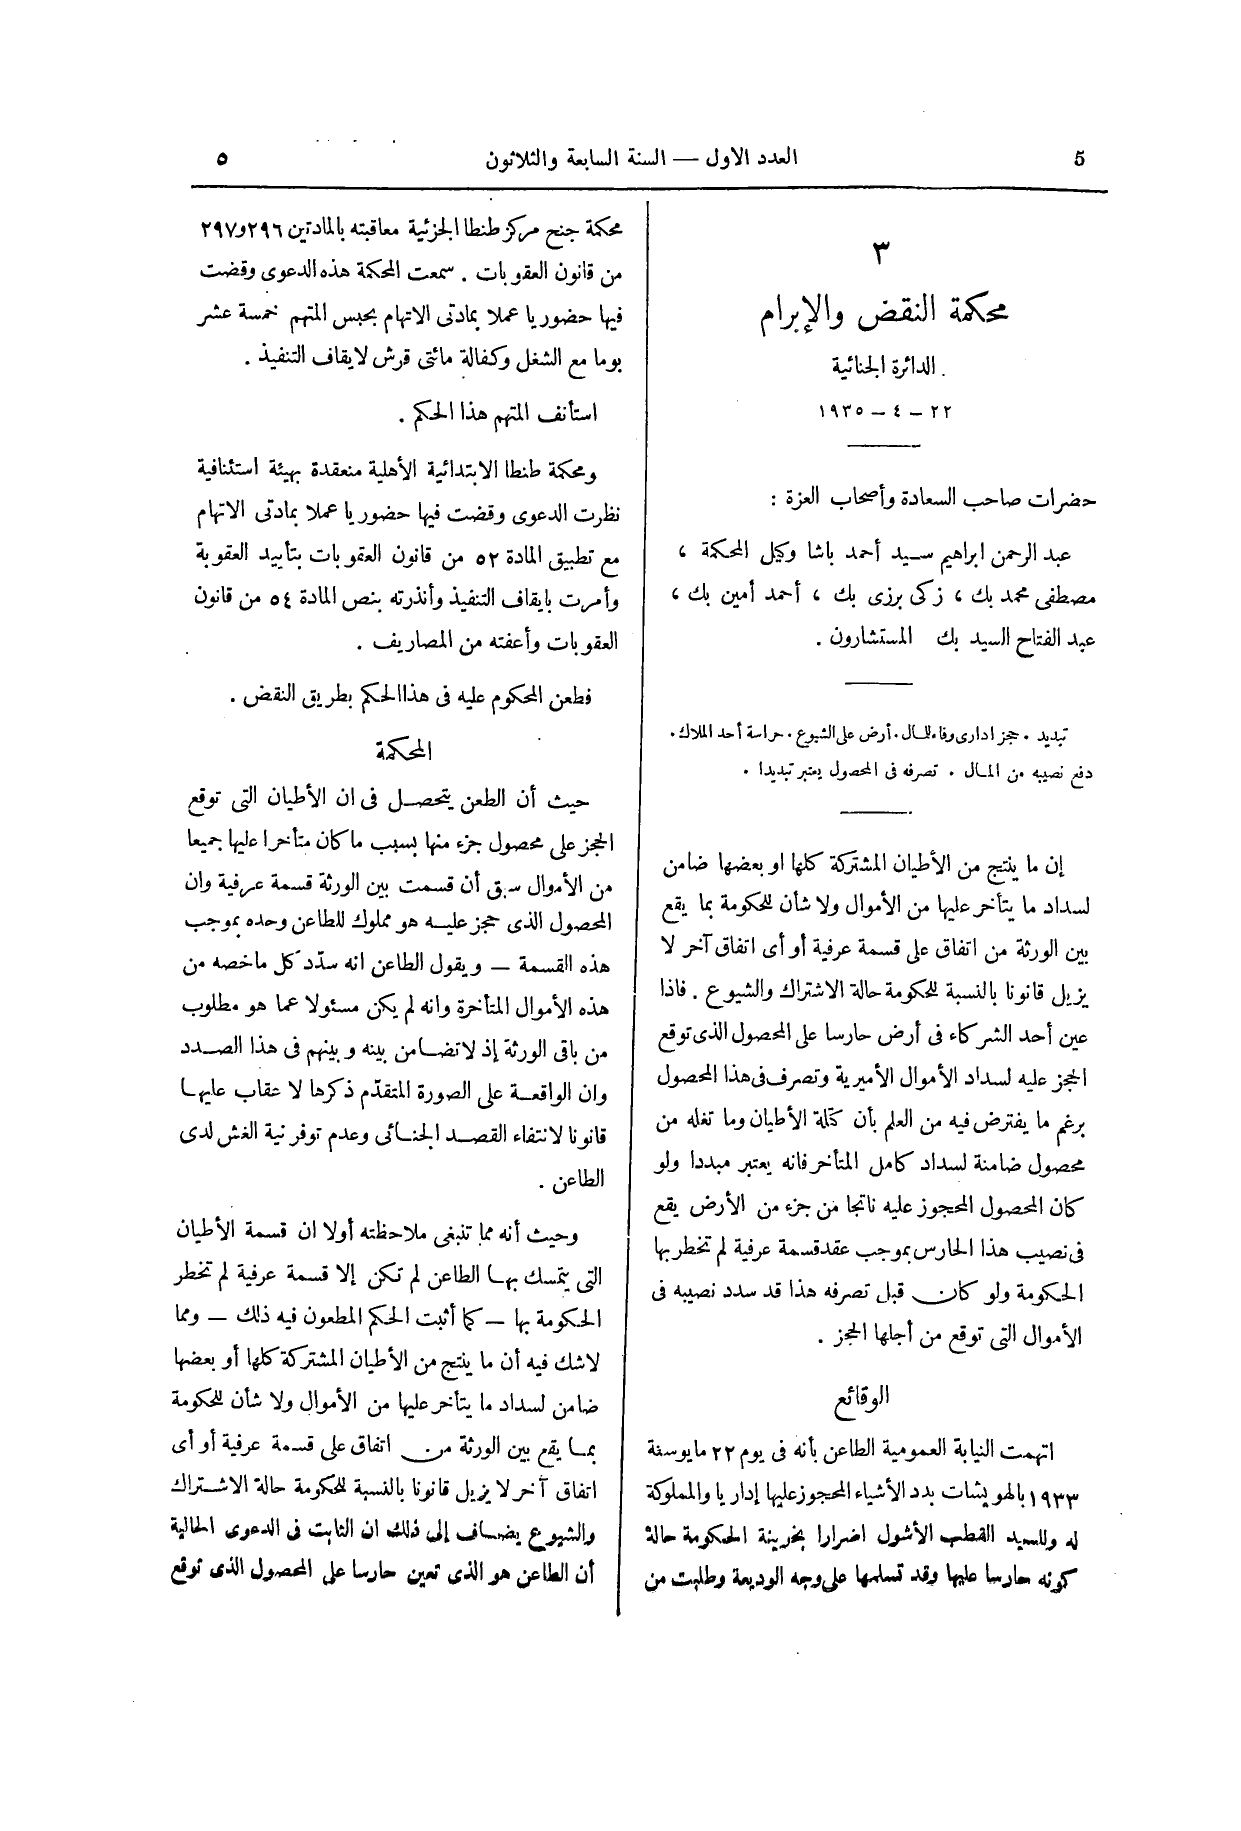 5 العدد الاول — السنة السابعة والثلاثون ٥
٣
محكمة النقض والإبرام
الدائرة الجنائية
٢٢ - ٤ - ١٩٣٥
حضرات صاحب السعادة وأصحاب العزة :
عبد الرحمن ابراهيم سيد أحمد باشا وكيل المحكمة ،
مصطفى محمد بك ، زكى برزى بك ، أحمد أمين بك ،
عبد الفتاح السيد بك المستشارون .
تبديد . حجز ادارى وفاء للمال . أرض على الشيوع . حراسة أحد الملاك .
دفع نصيبه من المال . تصرفه فى المحصول يعتبر تبديدا .
إن ما ينتج من الأطيان المشتركة كلها او بعضها ضامن
لسداد ما يتأخر عليها من الأموال ولا شأن للحكومة بما يقع
بين الورثة من اتفاق على قسمة عرفية أو أى اتفاق آخر لا
يزيل قانونا بالنسبة للحكومة حالة الاشتراك والشيوع . فاذا
عين أحد الشركاء فى أرض حارسا على المحصول الذى توقع
الحجز عليه لسداد الأموال الأميرية وتصرف فى هذا المحصول
برغم ما يفترض فيه من العلم بأن كتلة الأطيان وما تغله من
محصول ضامنة لسداد كامل المتأخر فانه يعتبر مبددا ولو
كان المحصول المحجوز عليه ناتجا من جزء من الأرض يقع
فى نصيب هذا الحارس بموجب عقد قسمة عرفية لم تخطر بها
الحكومة ولو كان قبل تصرفه هذا قد سدد نصيبه فى
الأموال التى توقع من أجلها الحجز .
الوقائع
اتهمت النيابة العمومية الطاعن بأنه فى يوم ٢٢ مايو سنة
١٩٣٣ بالهويشات بدد الأشياء المحجوز عليها إداريا والمملوكة
له وللسيد القطب الأشول اضرارا بخزينة الحكومة حالة
كونه حارسا عليها وقد تسلمها على وجه الوديعة وطلبت من
محكمة جنح مركز طنطا الجزئية معاقبته بالمادتين ٢٩٦ و٢٩٧
من قانون العقوبات . سمعت المحكمة هذه الدعوى وقضت
فيها حضوريا عملا بمادتى الاتهام بحبس المتهم خمسة عشر
يوما مع الشغل وكفالة مائتى قرش لايقاف التنفيذ .
استأنف المتهم هذا الحكم .
ومحكمة طنطا الابتدائية الأهلية منعقدة بهيئة استئنافية
نظرت الدعوى وقضت فيها حضوريا عملا بمادتى الاتهام
مع تطبيق المادة ٥٢ من قانون العقوبات بتأييد العقوبة
وأمرت بايقاف التنفيذ وأنذرته بنص المادة ٥٤ من قانون
العقوبات وأعفته من المصاريف .
فطعن المحكوم عليه فى هذا الحكم بطريق النقض .
المحكمة
حيث أن الطعن يتحصل فى ان الأطيان التى توقع
الحجز على محصول جزء منها بسبب ما كان متأخرا عليها جميعا
من الأموال سبق أن قسمت بين الورثة قسمة عرفية وان
المحصول الذى حجز عليه هو مملوك للطاعن وحده بموجب
هذه القسمة — ويقول الطاعن انه سدّد كل ما خصه من
هذه الأموال المتأخرة وانه لم يكن مسئولا عما هو مطلوب
من باقى الورثة إذ لا تضامن بينه وبينهم فى هذا الصدد
وان الواقعة على الصورة المتقدّم ذكرها لا عقاب عليها
قانونا لانتفاء القصد الجنائى وعدم توفر نية الغش لدى
الطاعن .
وحيث أنه مما تنبغى ملاحظته أولا ان قسمة الأطيان
التى يتمسك بها الطاعن لم تكن إلا قسمة عرفية لم تخطر
الحكومة بها — كما أثبت الحكم المطعون فيه ذلك — ومما
لاشك فيه أن ما ينتج من الأطيان المشتركة كلها أو بعضها
ضامن لسداد ما يتأخر عليها من الأموال ولا شأن للحكومة
بما يقع بين الورثة من اتفاق على قسمة عرفية أو أى
اتفاق آخر لا يزيل قانونا بالنسبة للحكومة حالة الاشتراك
والشيوع يضاف إلى ذلك ان الثابت فى الدعوى الحالية
أن الطاعن هو الذى تعين حارسا على المحصول الذى توقع